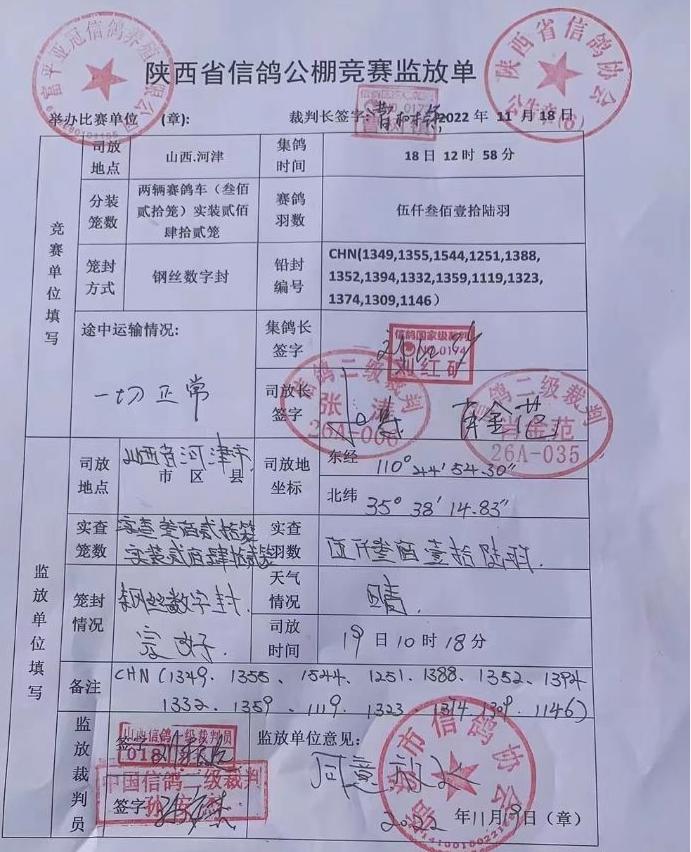 陕西省信鸽公棚竞赛监放单
富平亚冠信鸽养殖有限公司
陕西省信鸽协会
举办比赛单位 (章): 裁判长签字: 2022 年 11 月 18 日
竞赛单位填写
司放地点 山西.河津 集鸽时间 18 日 12 时 58 分
分装笼数 两辆赛鸽车（叁佰贰拾笼）实装贰佰肆拾贰笼 赛鸽羽数 伍仟叁佰壹拾陆羽
笼封方式 钢丝数字封 铅封编号 CHN(1349,1355,1544,1251,1388,
1352,1394,1332,1359,1119,1323,
1374,1309,1146）
途中运输情况: 集鸽长签字
信鸽国家级裁判
NO.0194
刘红矿
一切正常 司放长签字
信鸽二级裁判
26A-006
信鸽二级裁判
肖金范
26A-035
监放单位填写
司放地点 山西省河津市 市 区 县 司放地坐标 东经 110° 44′ 54.30″
北纬 35° 38′ 14.83″
实查笼数 实查叁佰贰拾笼
实装贰佰肆拾贰笼 实查羽数 伍仟叁佰壹拾陆羽.
笼封情况 钢丝数字封
完好. 天气情况 晴.
司放时间 19 日 10 时 18 分
备注 CHN (1349. 1355、1544、1251.1388、1352、1394
1332、1359、1119、1323、1374.1309、1146)
监放裁判员 签字
山西信鸽一级裁判员
018
中国信鸽二级裁判
签字
监放单位意见:
同意放飞
市信鸽协会
2022 年11月19日（章）